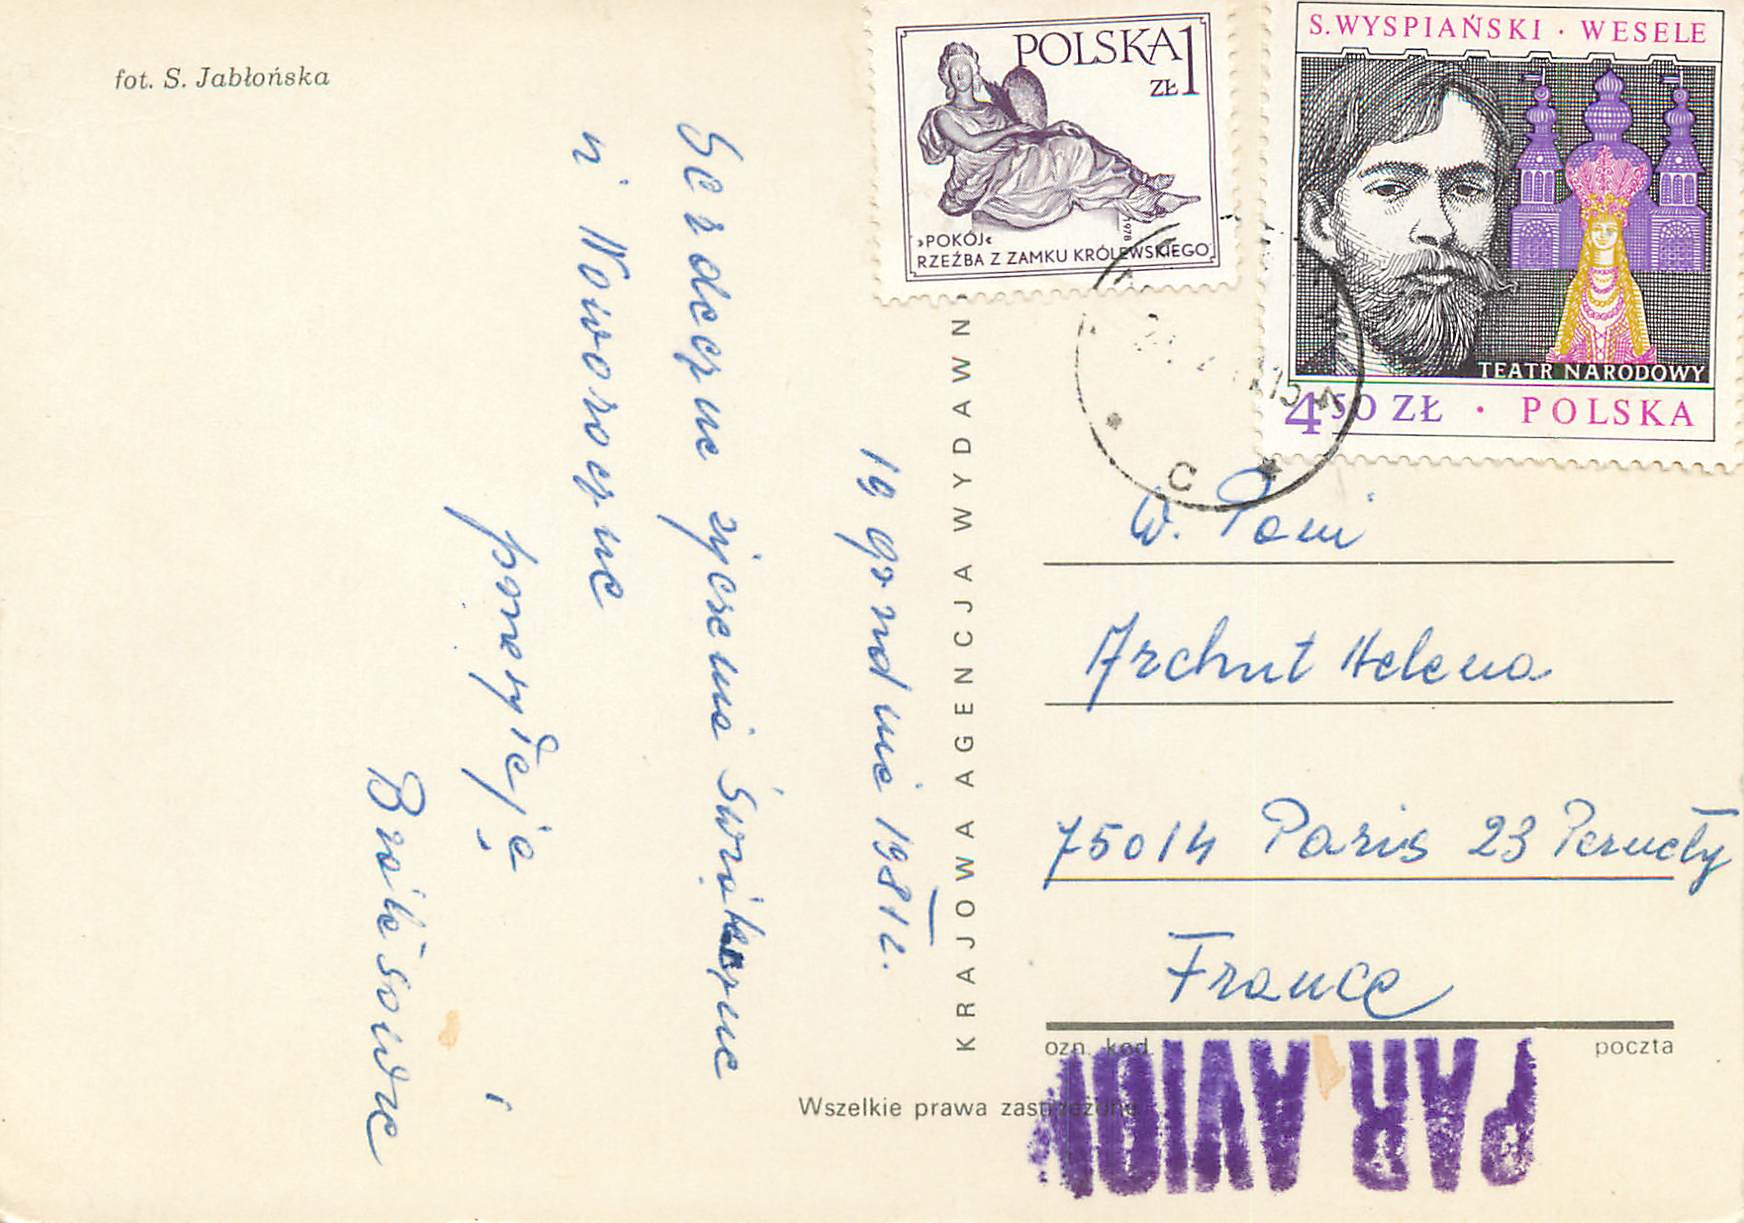 fot. S. Jabłońska
POLSKA
ZŁ 1
»POKÓJ«
RZEŹBA Z ZAMKU KRÓLEWSKIEGO
1978
S. WYSPIAŃSKI · WESELE
TEATR NARODOWY
4 50 ZŁ · POLSKA
C
19 grudnia 1981 r.
Serdeczne życzenia Świąteczne
i Noworoczne
przesyłają
KRAJOWA AGENCJA WYDAWN
W. Pani
Archut Helena
75014 Paris 23 Pernety
France
ozn. kod
poczta
Wszelkie prawa zastrzeżone
PAR AVION